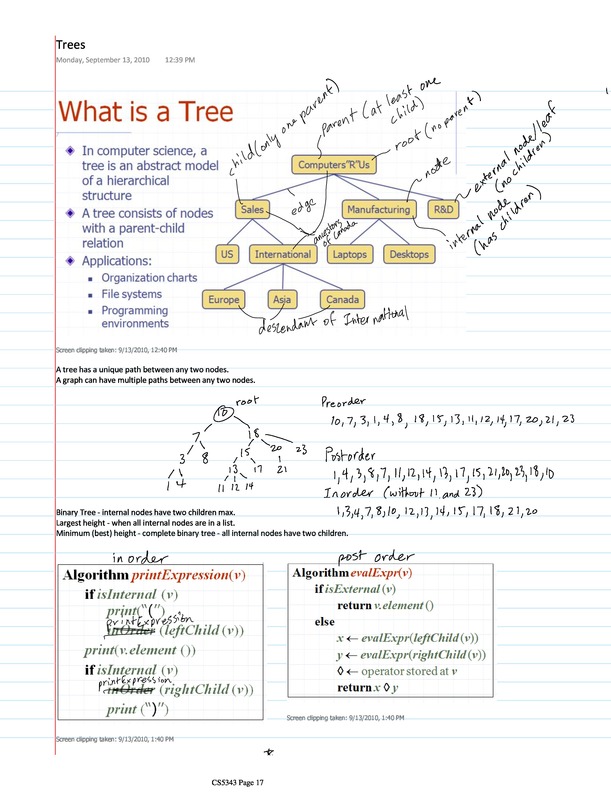 Trees
Monday, September 13, 2010 12:39 PM
What is a Tree
In computer science, a
tree is an abstract model
of a hierarchical
structure
A tree consists of nodes
with a parent-child
relation
Applications:
Organization charts
File systems
Programming
environments
child (only one parent)
parent (at least one
child)
root (no parent)
node
external node/leaf
(no children)
internal node
(has children)
edge
ancestors
of Canada
Computers"R"Us
Sales
Manufacturing
R&D
US
International
Laptops
Desktops
Europe
Asia
Canada
descendant of International
Screen clipping taken: 9/13/2010, 12:40 PM
A tree has a unique path between any two nodes.
A graph can have multiple paths between any two nodes.
root
10
7 18
3 8 15 20 23
1 4 13 17 21
11 12 14
Preorder
10, 7, 3, 1, 4, 8, 18, 15, 13, 11, 12, 14, 17, 20, 21, 23
Postorder
1, 4, 3, 8, 7, 11, 12, 14, 13, 17, 15, 21, 20, 23, 18, 10
Inorder (without 11 and 23)
1, 3, 4, 7, 8, 10, 12, 13, 14, 15, 17, 18, 21, 20
Binary Tree - internal nodes have two children max.
Largest height - when all internal nodes are in a list.
Minimum (best) height - complete binary tree - all internal nodes have two children.
in order
Algorithm printExpression(v)
if isInternal (v)
print("(")
printExpression
inOrder (leftChild (v))
print(v.element ())
if isInternal (v)
printExpression
inOrder (rightChild (v))
print (")")
Screen clipping taken: 9/13/2010, 1:40 PM
post order
Algorithm evalExpr(v)
if isExternal (v)
return v.element ()
else
x ← evalExpr(leftChild (v))
y ← evalExpr(rightChild (v))
◊ ← operator stored at v
return x ◊ y
Screen clipping taken: 9/13/2010, 1:40 PM
CS5343 Page 17